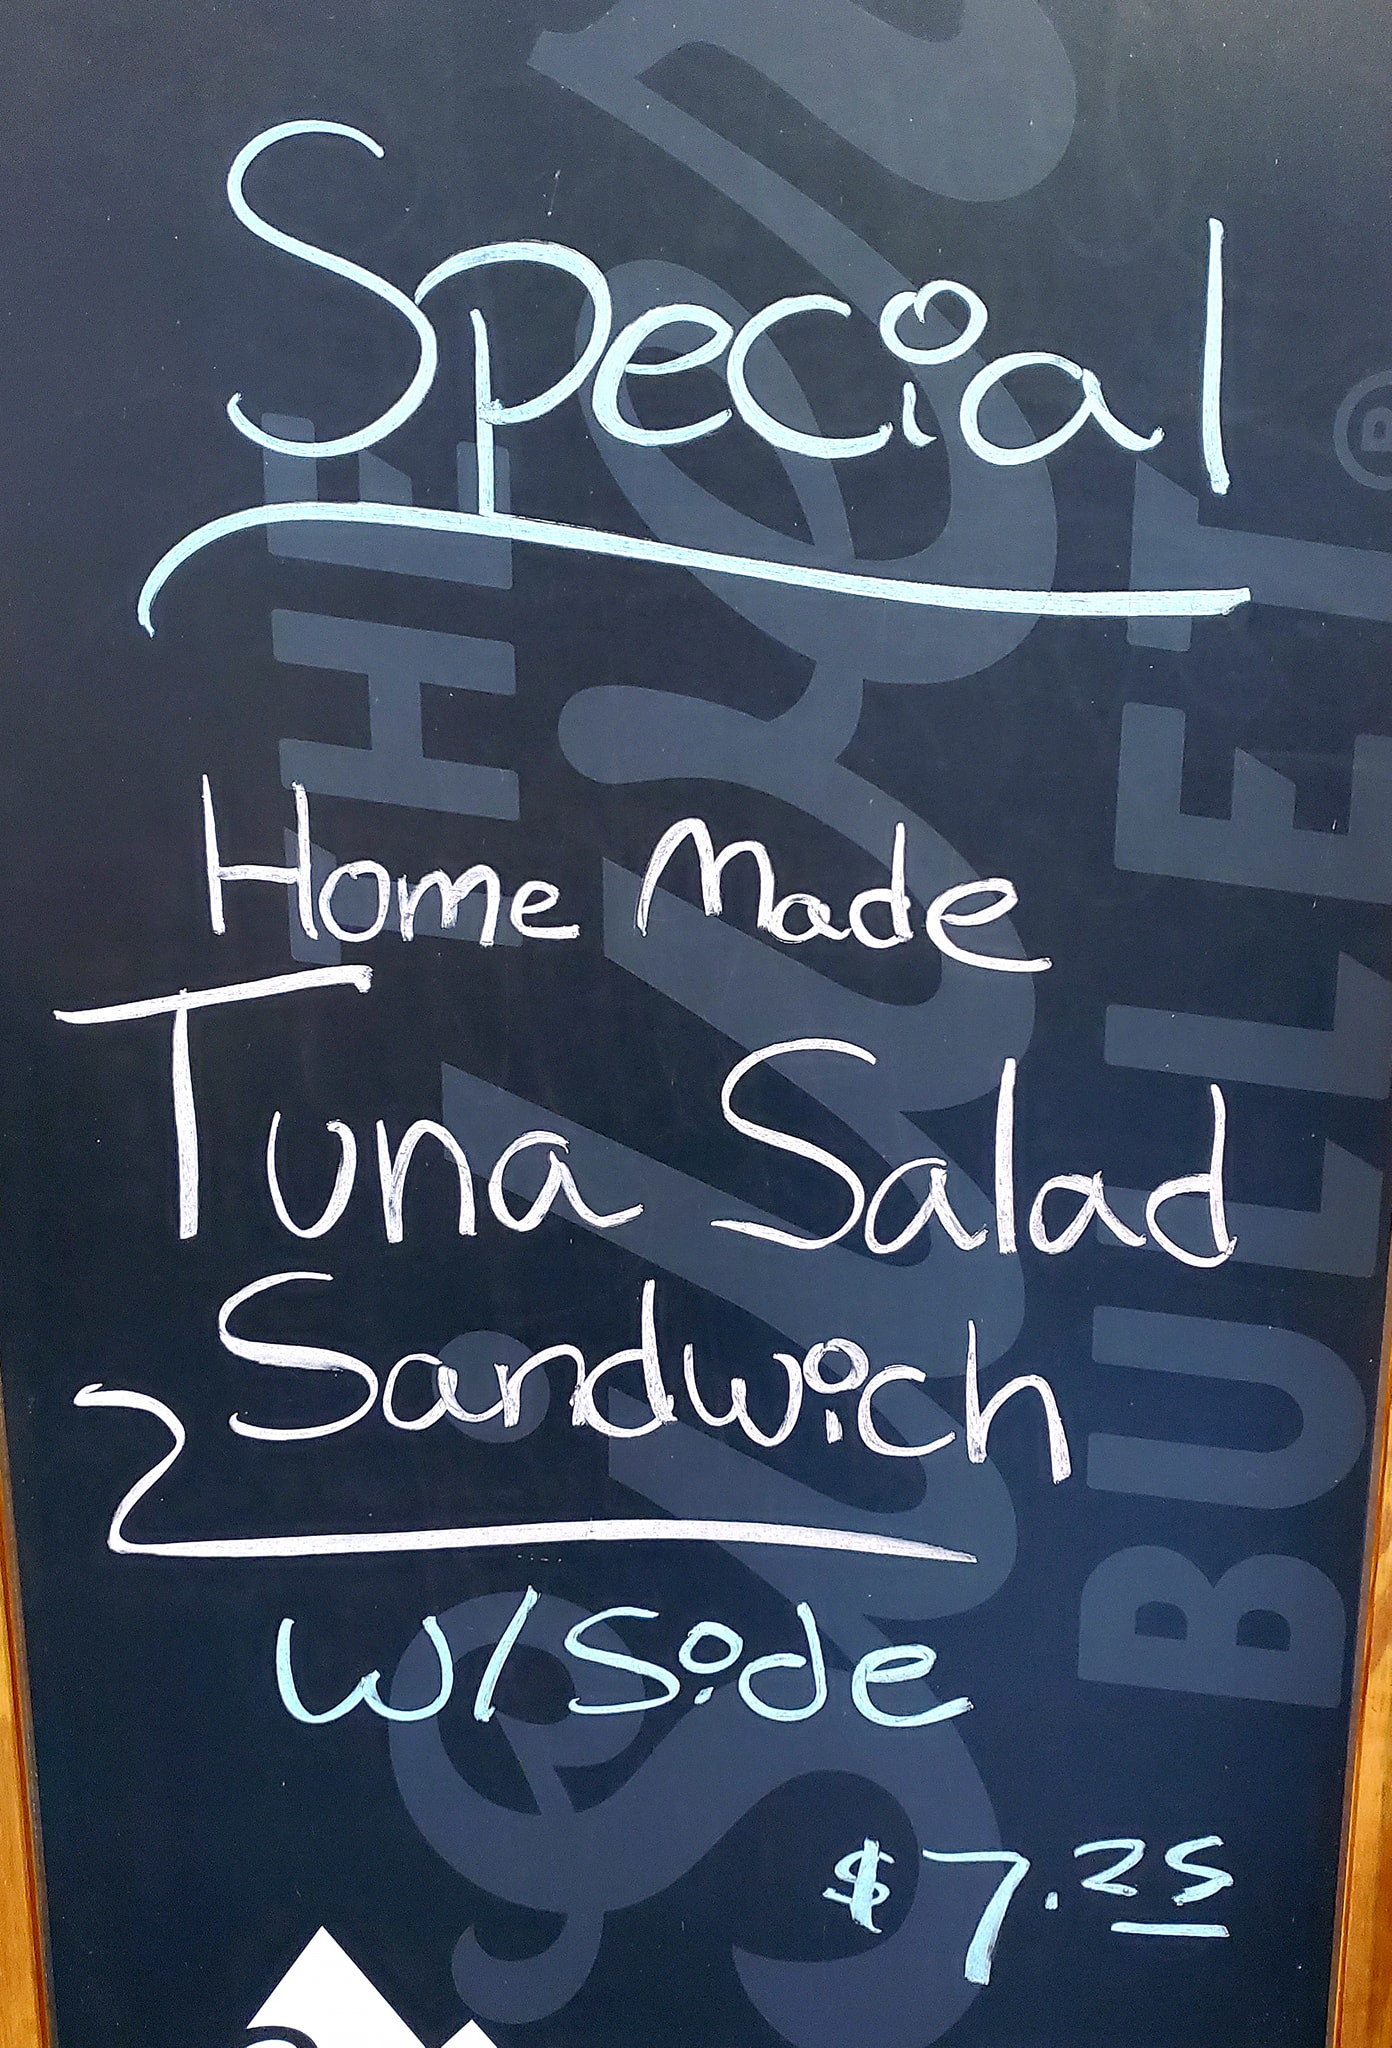 Special
Home Made
Tuna Salad
Sandwich
w/Side
$7.25
THE
Silver
BULLET®